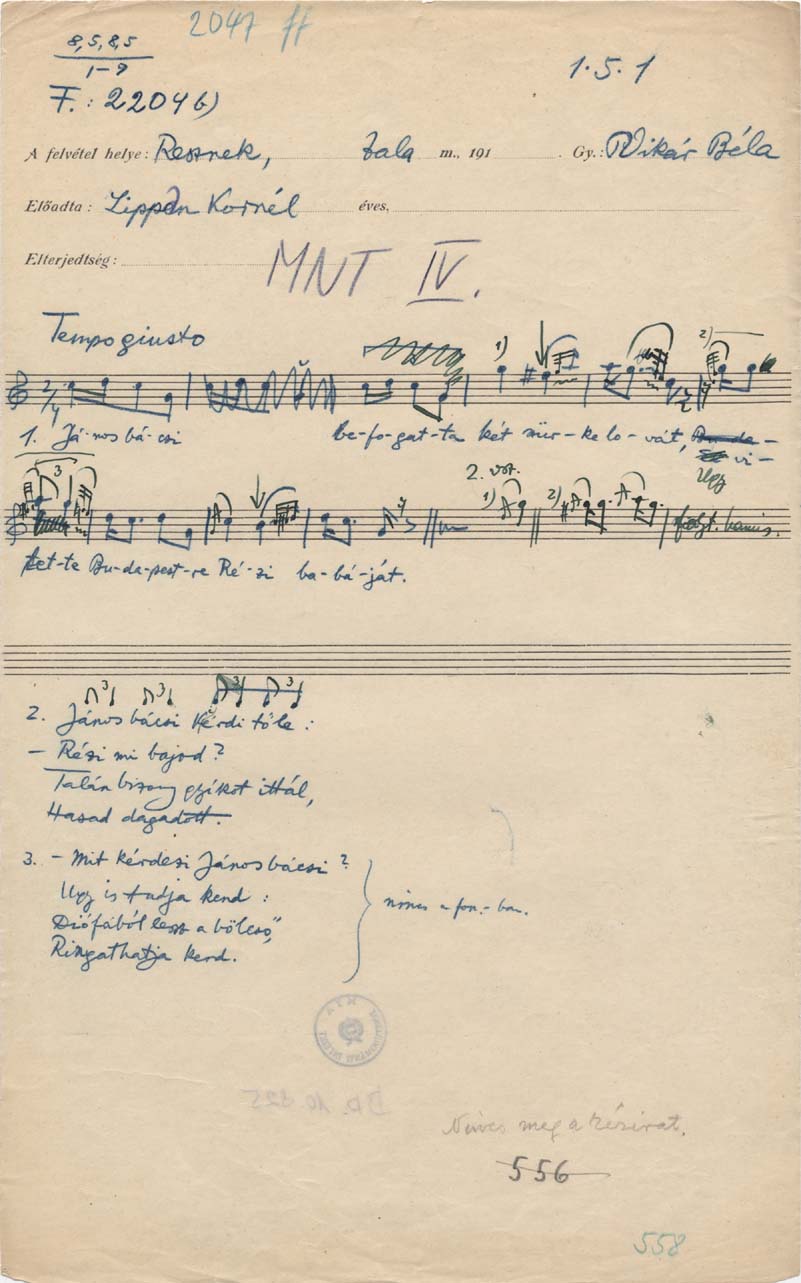 2047 ff
8,5,8,5
1-9
1.5.1
F.: 2204 b)
A felvétel helye: Resznek, Zala m., 191 Gy.: Vikár Béla
Előadta: Lippán Kornél éves,
Elterjedtség:
MNT IV.
Tempo giusto
1) 2)
2/4
1. János bácsi be-fo-gat-ta két szür-ke lo-vát, Bu-da-
Ugy vi-
3
2. vsz.
1) 2)
folyt. hanis.
tet-te Bu-da-pest-re Ré-zi ba-bá-ját.
3 3 3 3
2. János bácsi kérdi tőle:
— Rézi mi bajod?
Talán bizony gyíkot ittál,
Hasad dagadott.
3. – Mit kérdezi János bácsi?
Ugy is tudja kend:
Diófából lessz a bölcső,
Ringathatja kend.
nincs a fon.-ban.
Nincs meg a kézirat.
556
558